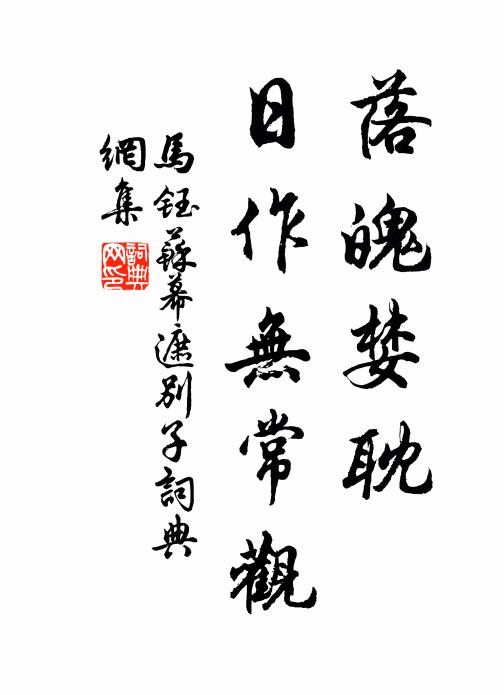 落魄婪耽
日作無常觀
馬鈺蘇幕遮別子詞典
網集
詞典
网印